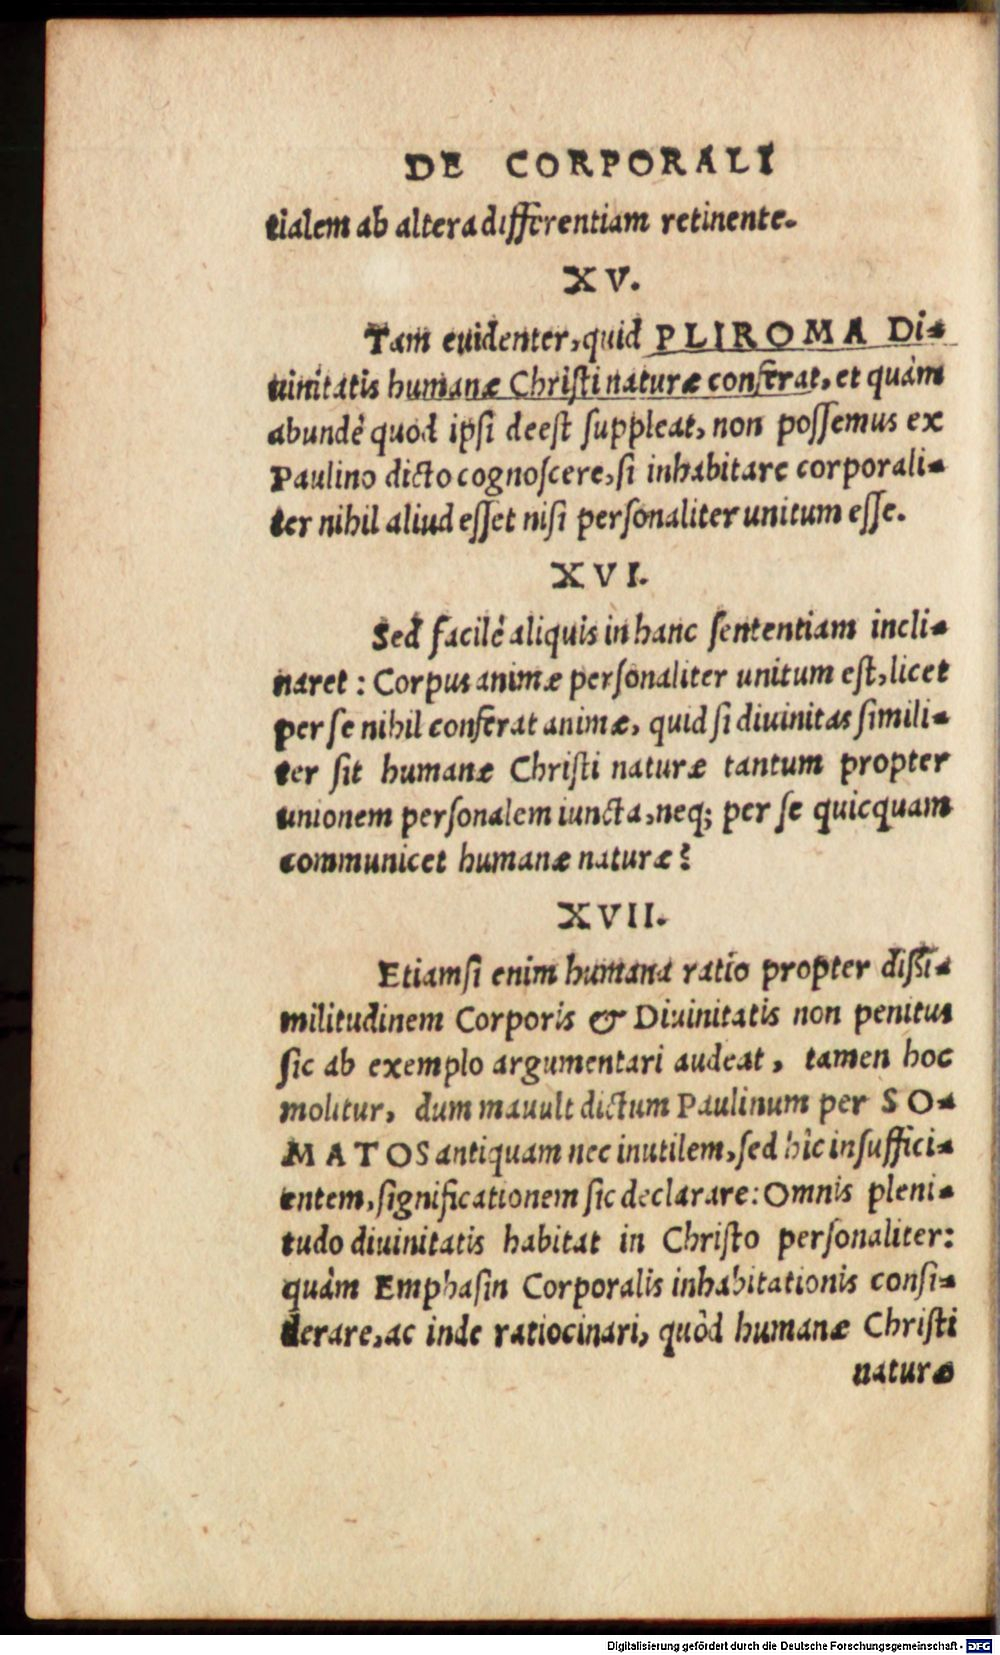 DE CORPORALI
tialem ab altera differentiam retinente.
XV.
Tam euidenter, quid PLIROMA Di-
uinitatis humanæ Christi naturæ conferat, et quàm
abundè quod ipsi deest suppleat, non possemus ex
Paulino dicto cognoscere, si inhabitare corporali-
ter nihil aliud esset nisi personaliter unitum esse.
XVI.
Sed facilè aliquis in hanc sententiam incli-
naret: Corpus animæ personaliter unitum est, licet
per se nihil conferat animæ, quid si diuinitas simili-
ter sit humanæ Christi naturæ tantum propter
unionem personalem iuncta, neq; per se quicquam
communicet humanæ naturæ?
XVII.
Etiamsi enim humana ratio propter dissi-
militudinem Corporis & Diuinitatis non penitus
sic ab exemplo argumentari audeat, tamen hoc
molitur, dum mauult dictum Paulinum per SO-
MATOS antiquam nec inutilem, sed hìc insuffici-
entem, significationem sic declarare: Omnis pleni-
tudo diuinitatis habitat in Christo personaliter:
quàm Emphasin Corporalis inhabitationis consi-
derare, ac inde ratiocinari, quòd humanæ Christi
naturæ
Digitalisierung gefördert durch die Deutsche Forschungsgemeinschaft - DFG